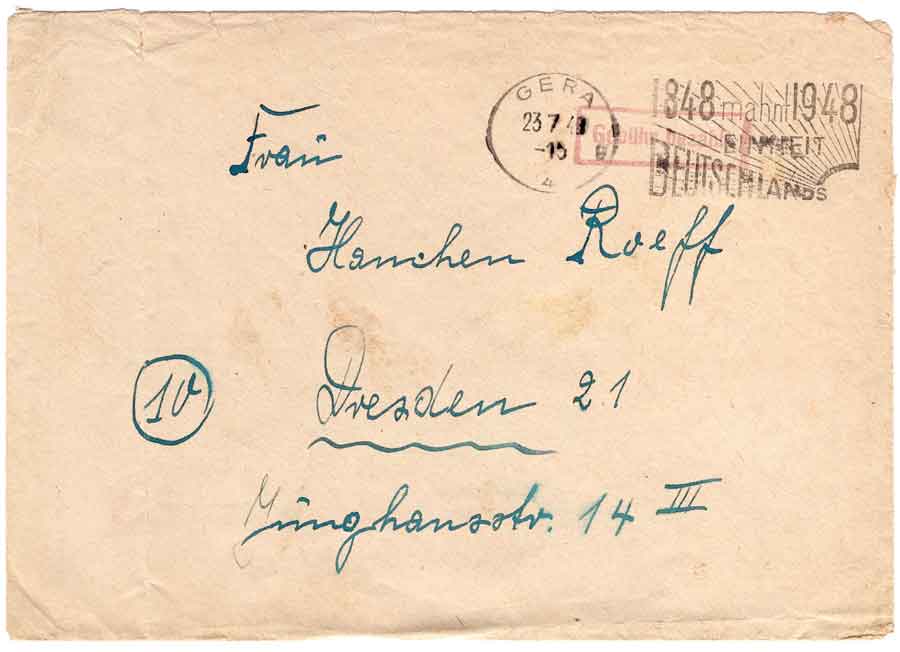 GERA
23.7.48
-18
4
1848 mahnt 1948
EINHEIT
DEUTSCHLANDS
Gebühr bezahlt
Frau
Hanchen Roeff
10
Dresden 21
Junghansstr. 14 III